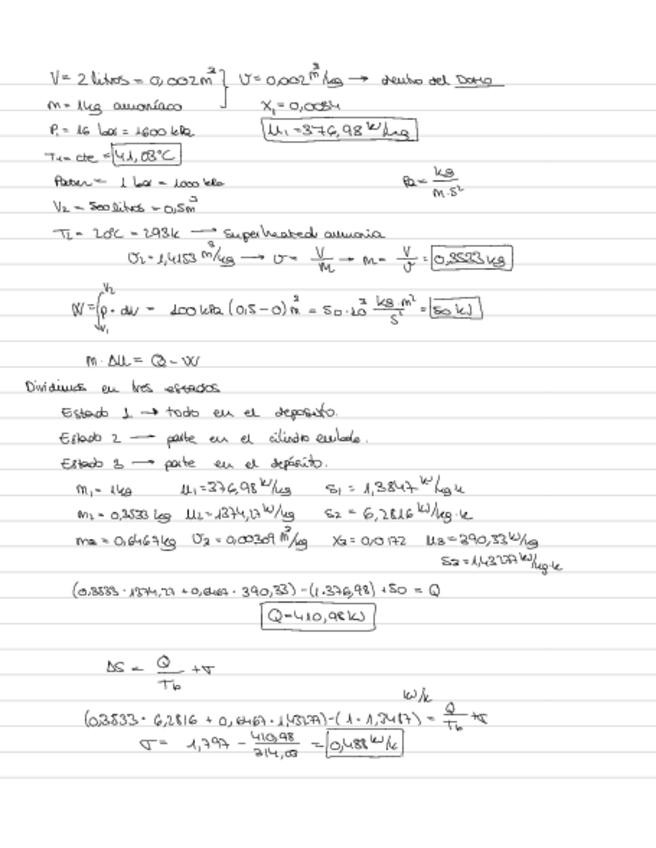 V = 2 litros = 0,002 m³ } υ = 0,002 m³/kg → dentro del Domo
m = 1 kg amoníaco x₁ = 0,0084
P₁ = 16 bar = 1600 kPa u₁ = 376,98 kJ/kg
T₁ = cte = 41,03°C
= 1 bar = 1000 kPa Pa = kg/m·s²
V₂ = 500 litros = 0,5 m³
T₂ = 20°C = 293 K → Superheated ammonia
υ₂ = 1,4153 m³/kg → υ = V/m → m = V/υ = 0,3533 kg
W = ∫v₁^v₂ p · dv = 100 kPa (0,5 - 0) m³ = 50·10³ kg·m²/s² = 50 kJ
m · Δu = Q - W
Dividimos en tres estados
Estado 1 → todo en el deposito.
Estado 2 → parte en el cilindro
Estado 3 → parte en el depósito.
m₁ = 1 kg u₁ = 376,98 kJ/kg s₁ = 1,3847 kJ/kg·k
m₂ = 0,3533 kg u₂ = 1374,27 kJ/kg s₂ = 6,2816 kJ/kg·k
m₃ = 0,6467 kg υ₃ = 0,00309 m³/kg x₃ = 0,0172 u₃ = 390,33 kJ/kg
s₃ = 1,43277 kJ/kg·k
(0,3533 · 1374,27 + 0,6467 · 390,33) - (1·376,98) + 50 = Q
Q = 410,98 kJ
ΔS = Q/Tb + σ
kJ/k
(0,3533 · 6,2816 + 0,6467 · 1,43277) - (1 · 1,3487) = Q/Tb + σ
σ = 1,797 - 410,98/314,03 = 0,488 kJ/k